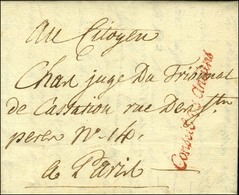 Au Citoyen
Chas juge Du Tribunal
de Cassation rue Des Sts
peres No. 14.
a Paris
Conseil des Anciens